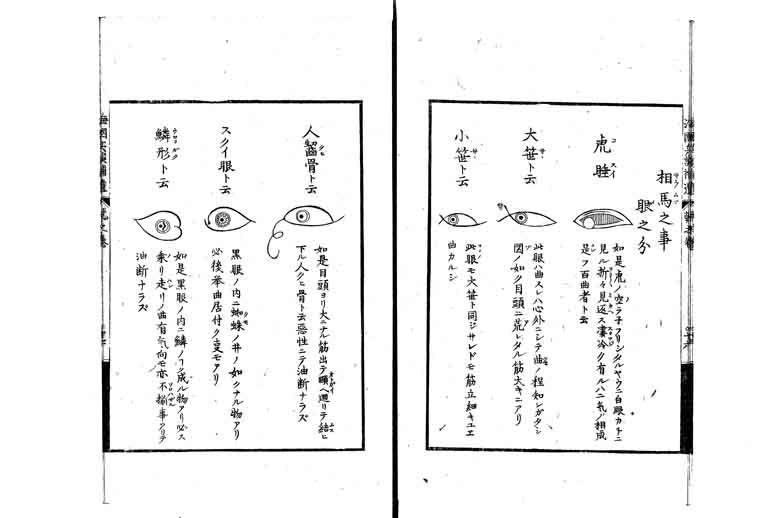 相馬之事
眼之分
虎睡
コ スイ
如是虎ノ空ラ子フリシタルヤウニ白眼カトニ
見ル折々見返ス凄冷ク有ルハニ気ノ相成
是フ百曲者ト云
大笹ト云
此眼ハ曲スレハ心外ニシテ曲ノ程知レガタシ
図ノ如ク目頭ニ荒レタル筋大キニアリ
小笹ト云
此眼モ大笹ト同ジサレドモ筋立細キユエ
曲カルシ
人齧骨ト云
如是目頭ヨリ大ニナル筋出テ顋ヘ廻リテ結ヒ
下ル人クヒ骨ト云惡性ニテ油断ナラズ
スクイ眼ト云
黒眼ノ内ニ蜘蛛ノ井ノ如クナル物アリ
必後挙曲居付ク支モアリ
鱗形ト云
如是黒眼ノ内ニ鱗ノリク成ル物アリ必ス
乗リ走リノ曲有気向モ亦不揃事アリテ
油断ナラズ